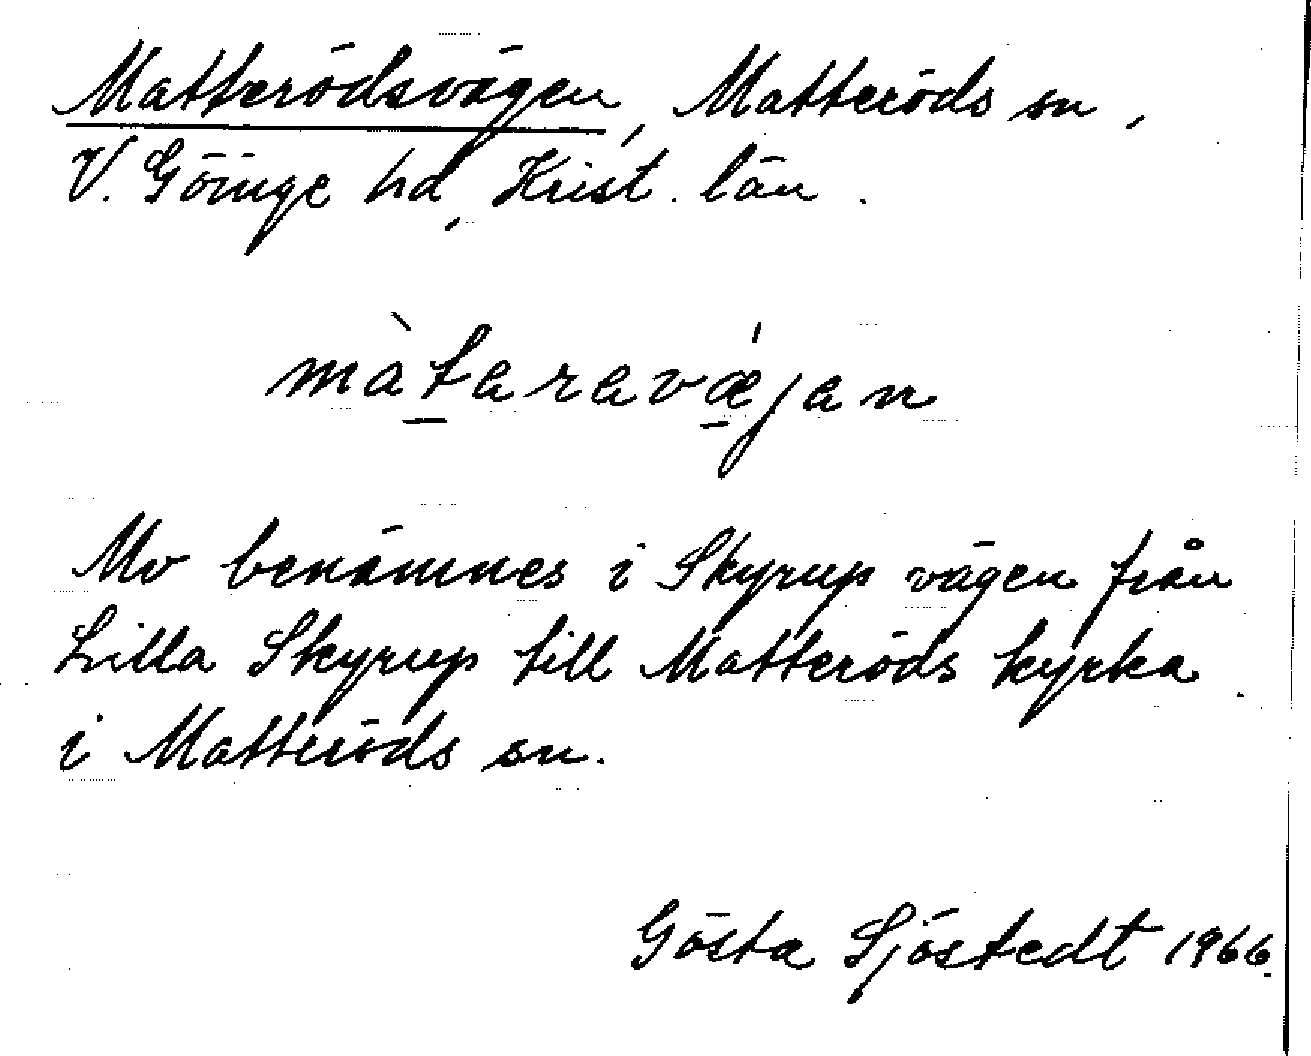 Matterödsvägen, Matteröds sn,
V. Göinge hd, Krist. län.
màtaravǽjan
Mv benämnes i Skyrup vägen från
Lilla Skyrup till Matteröds kyrka
i Matteröds sn.
Gösta Sjöstedt 1966.